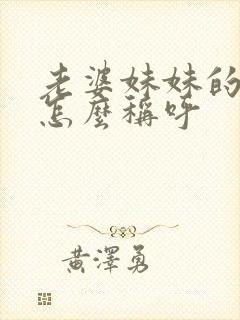 老婆妹妹的
怎麼稱呼
黃澤勇